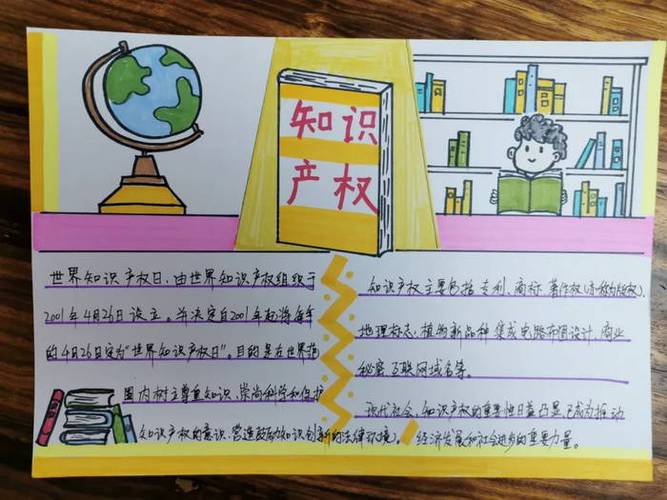 知识
产权
世界知识产权日,由世界知识产权组织于
2001年4月26日设立。并决定自2001年起将每年
的4月26日定为“世界知识产权日”。目的是在世界范
围内树立尊重知识、崇尚科学和保护
知识产权的意识、营造鼓励知识创新的法律环境。
知识产权主要包括专利、商标、著作权(亦称为版权)、
地理标志、植物新品种、集成电路布图设计、商业
秘密、互联网域名等。
现代社会、知识产权的重要性日益凸显、已成为推动
经济发展和社会进步的重要力量。